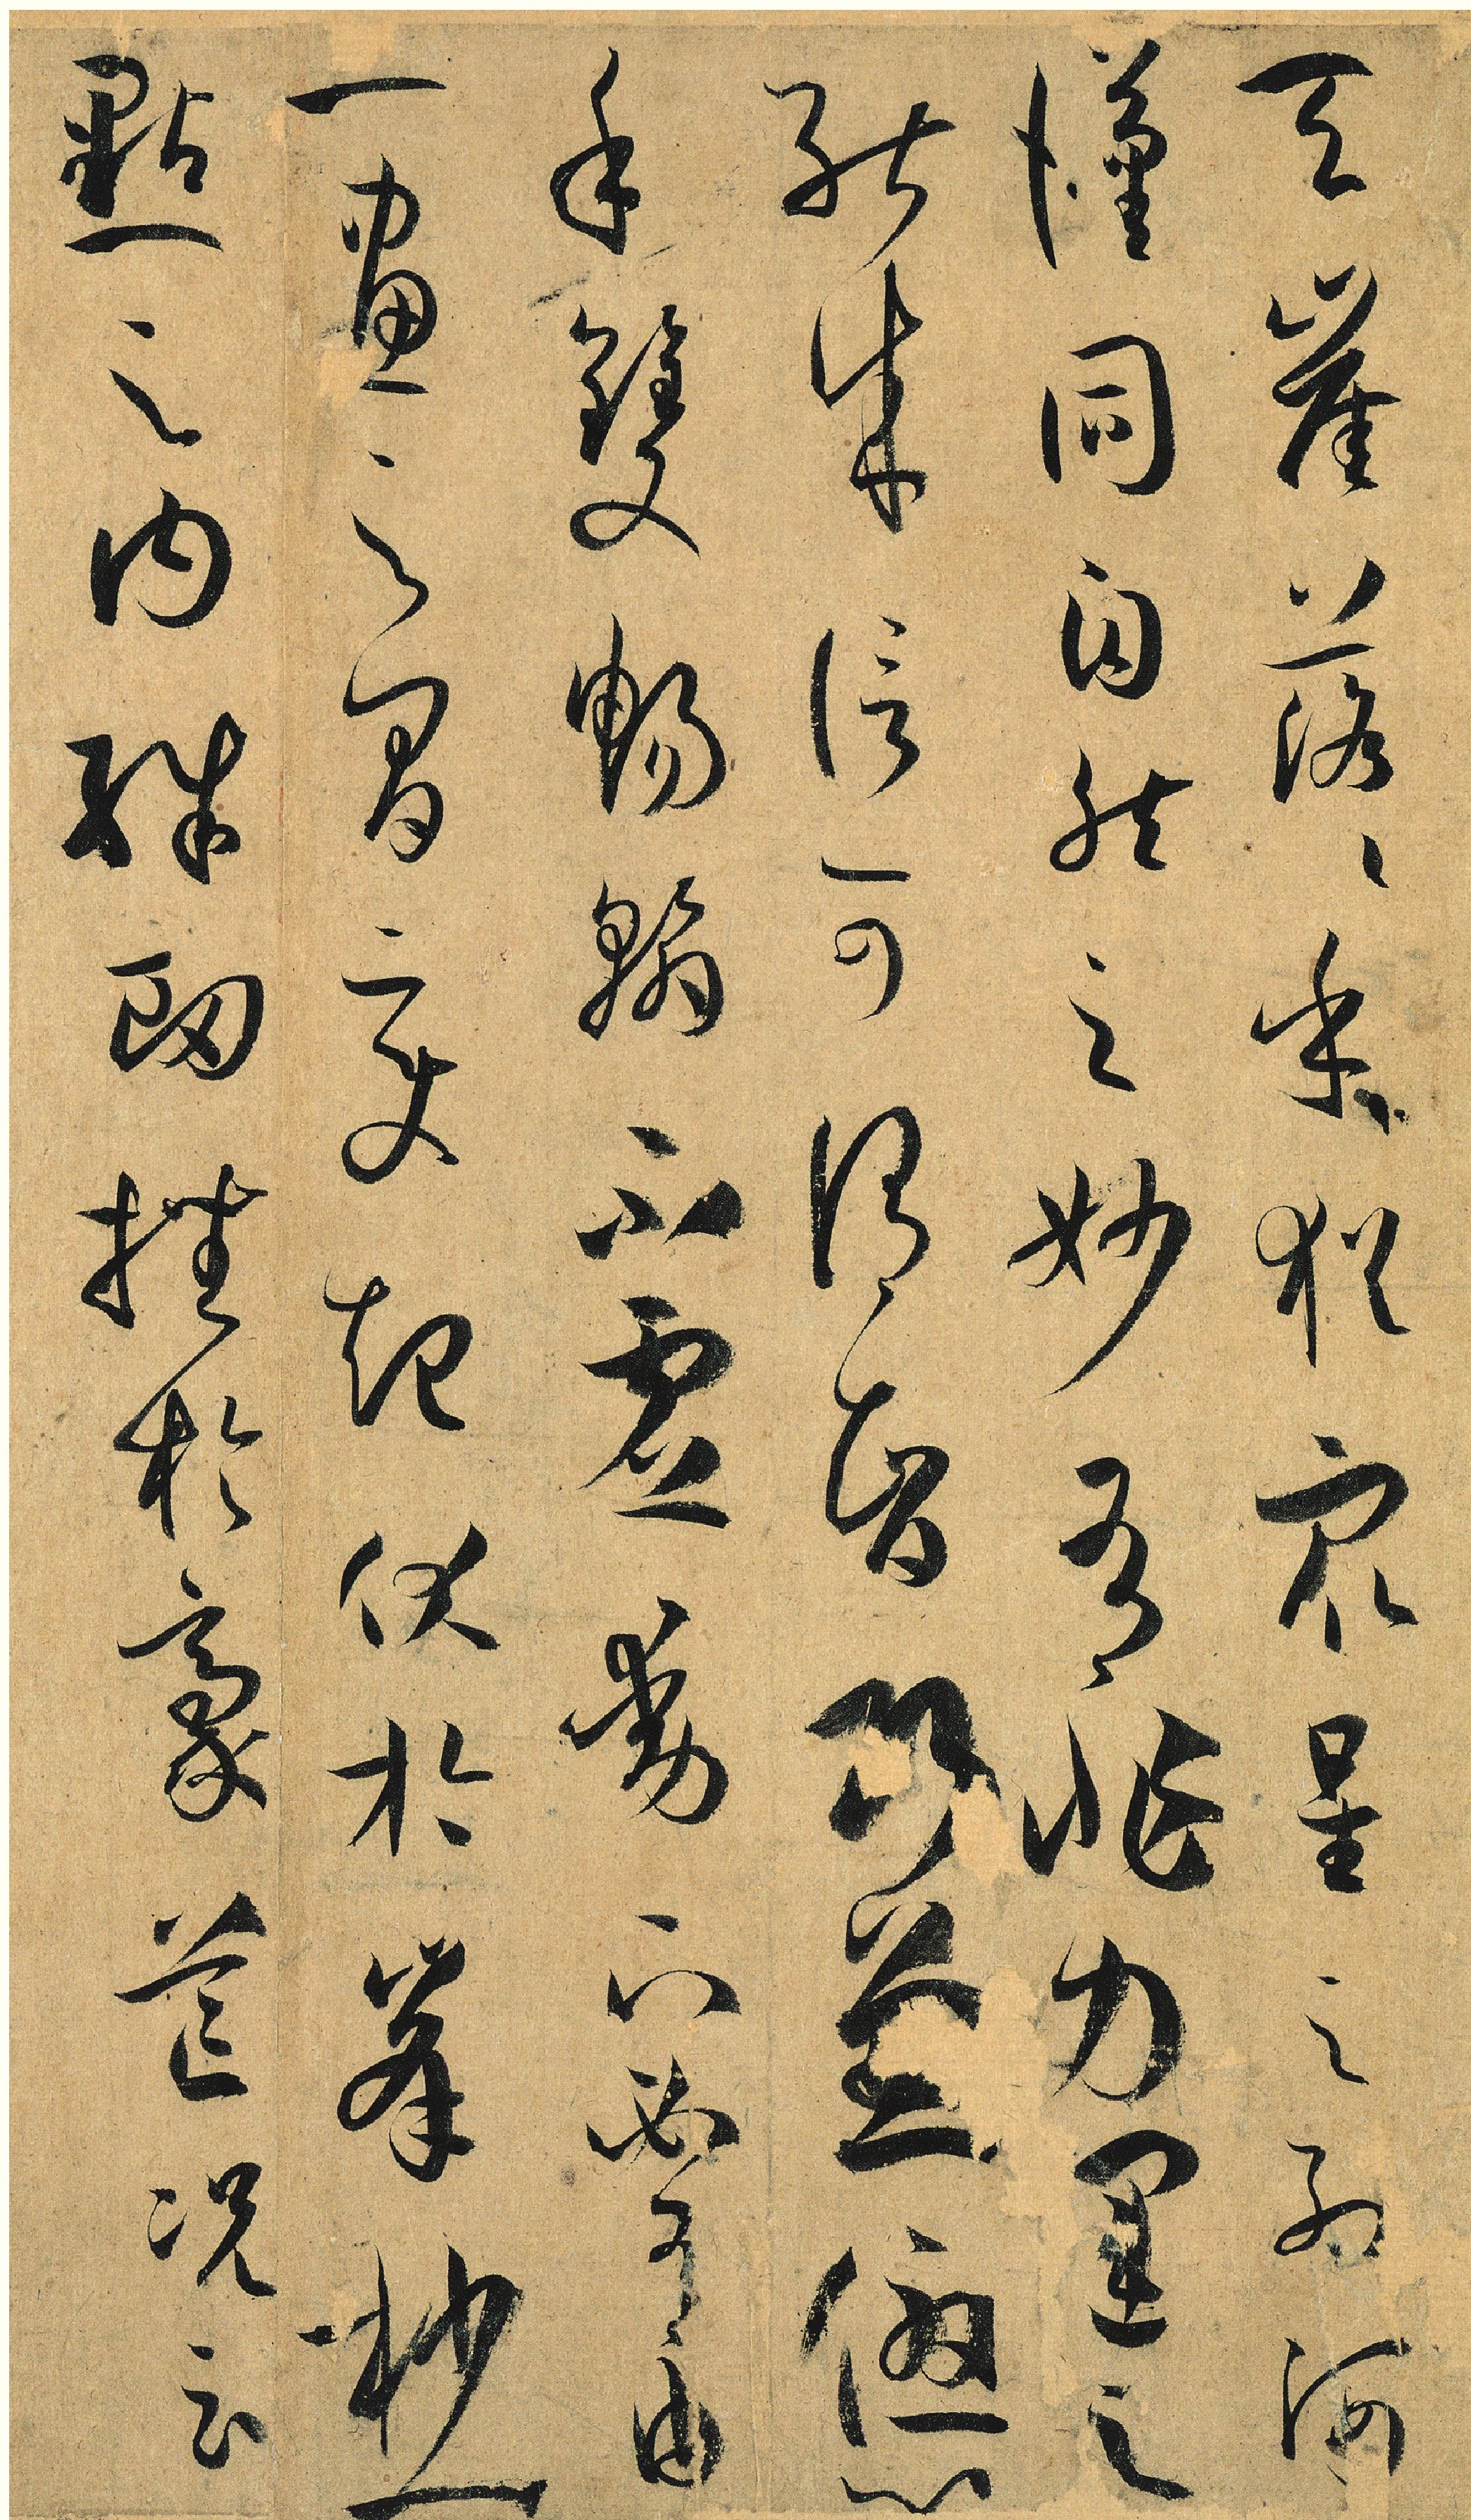 天崖落々乎猶衆星之列河
漢同自然之妙有非力運之
能成信可謂智巧兼優心
手雙暢翰不虛動下必有由
一畫之間變起伏於峯杪一
點之内殊衂挫於豪芒況云